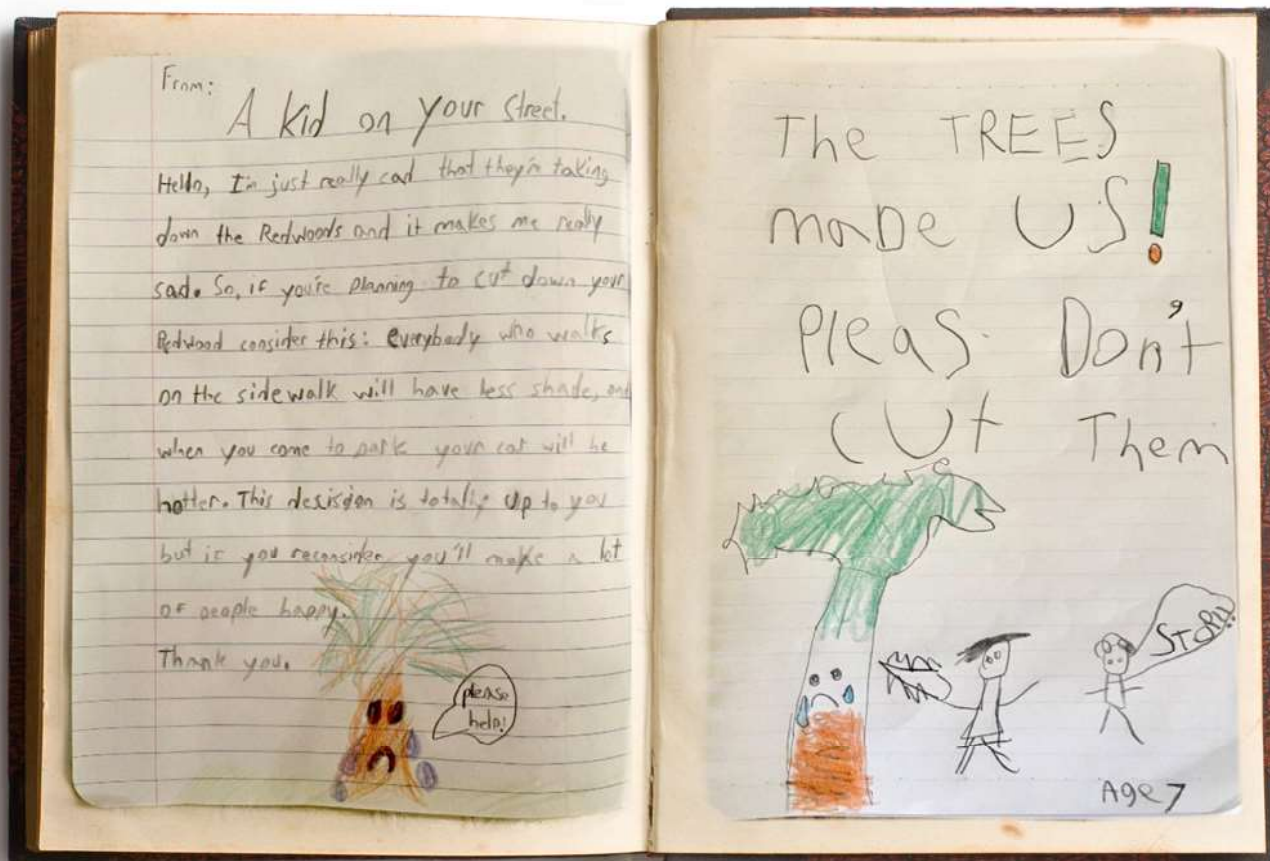 From:
A kid on your street.
Hello, I'm just really cad that they're taking
down the Redwoods and it makes me really
sad. So, if you're planning to cut down your
Redwood consider this: everybody who walks
on the sidewalk will have less shade, and
when you come to park your car will be
hotter. This desision is totally up to you
but if you reconsider you'll make a lot
of people happy.
Thank you.
please
help!
The TREES
made US!
Pleas Don't
cut Them
STOP!!
Age 7